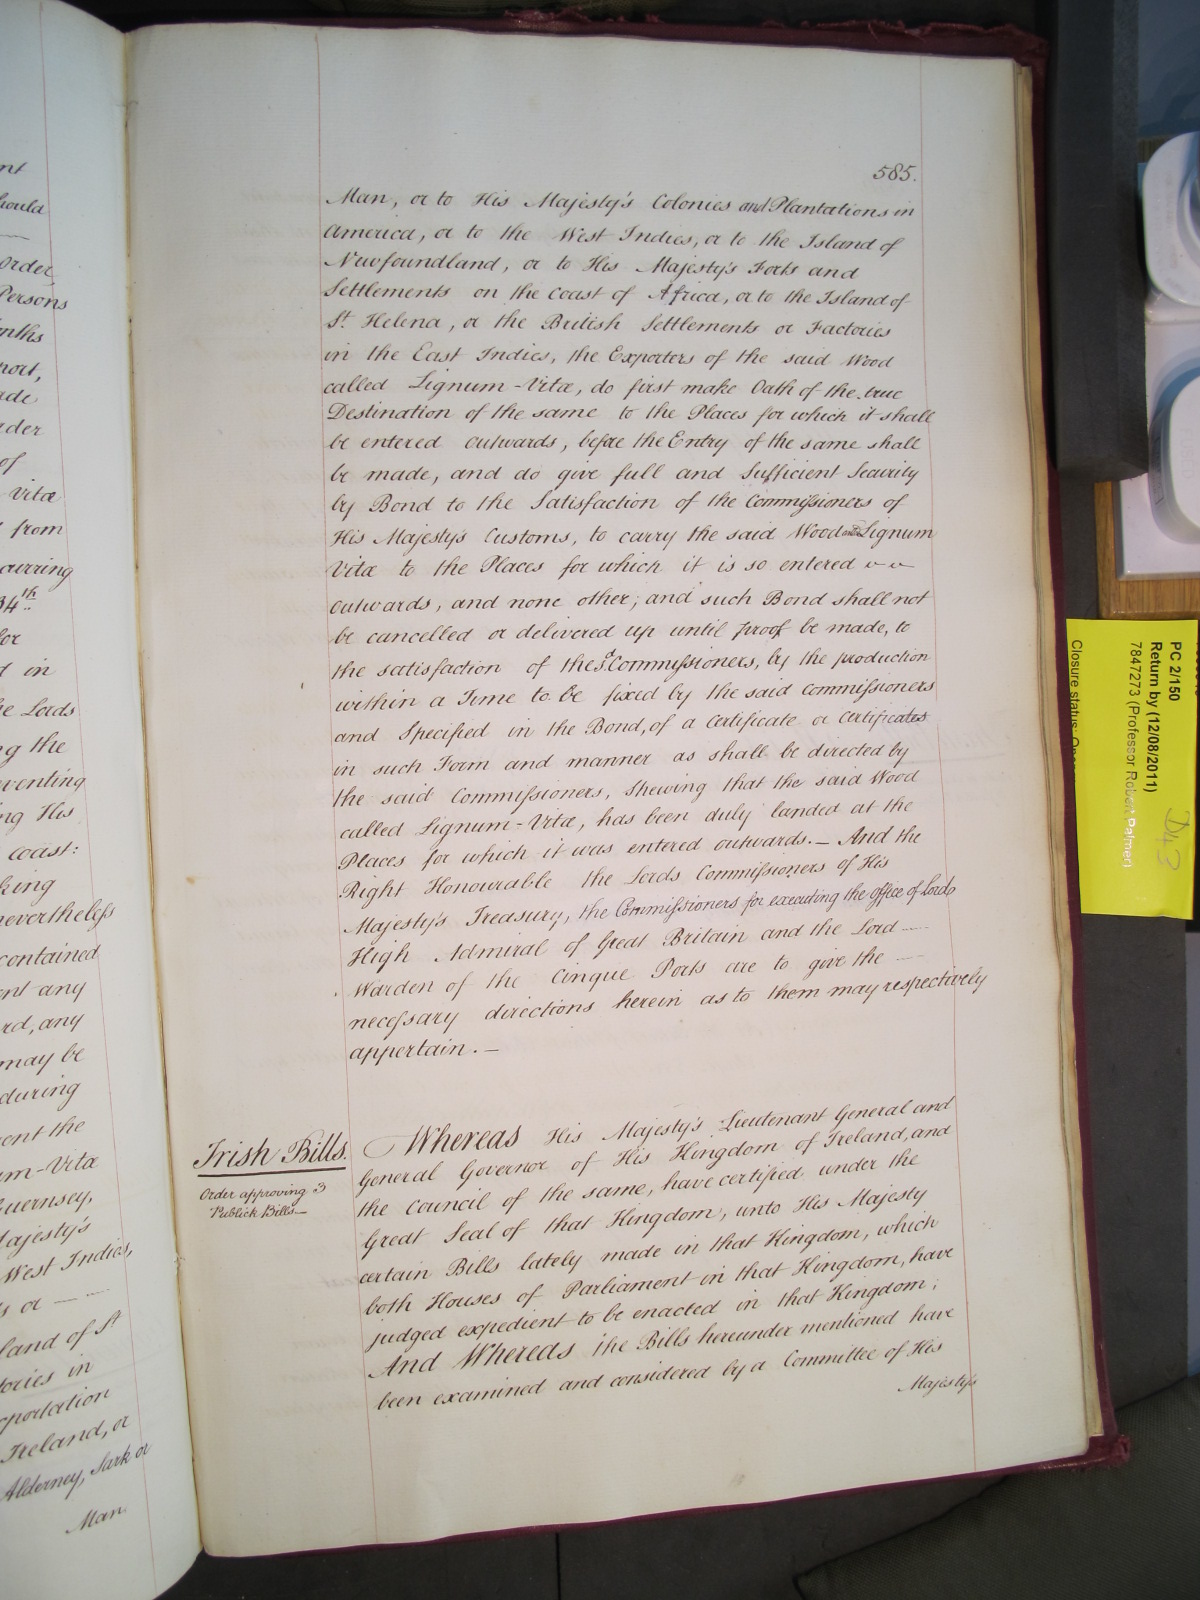 nt
hould
order
Persons
nths
port,
ade
der
of
vitæ
from
averring
34th
for
d in
he Lords
ng the
venting
ng His
coast:
king
nevertheless
contained
nt any
rd, any
may be
during
ent the
um-Vitæ
Guernsey,
Majesty's
West Indies,
s or — —
land of St
tories in
xportation
Ireland, or
Alderney, Sark or
Man.
585.
Man, or to His Majesty's Colonies and Plantations in
America, or to the West Indies, or to the Island of
Newfoundland, or to His Majesty's Forts and
Settlements on the Coast of Africa, or to the Island of
St. Helena, or the British Settlements or Factories
in the East Indies, the Exporters of the said Wood
called Lignum-Vitæ, do first make Oath of the true
Destination of the same to the Places for which it shall
be entered outwards, before the Entry of the same shall
be made, and do give full and Sufficient Security
by Bond to the Satisfaction of the Commissioners of
His Majesty's Customs, to carry the said Wood called Lignum
Vitæ to the Places for which it is so entered
outwards, and none other; and such Bond shall not
be cancelled or delivered up until proof be made, to
the satisfaction of the sd. Commissioners, by the production
within a Time to be fixed by the said Commissioners
and Specified in the Bond, of a Certificate or Certificates
in such Form and manner as shall be directed by
the said Commissioners, Shewing that the said Wood
called Lignum-Vitæ, has been duly landed at the
Places for which it was entered outwards. — And the
Right Honourable the Lords Commissioners of His
Majesty's Treasury, the Commissioners for executing the office of Lord
High Admiral of Great Britain and the Lord —
Warden of the Cinque Ports are to give the —
necessary directions herein as to them may respectively
appertain. —
Irish Bills.
Order approving 3
Publick Bills —
Whereas His Majesty's Lieutenant General and
General Governor of His Kingdom of Ireland, and
the Council of the same, have certified under the
Great Seal of that Kingdom, unto His Majesty
certain Bills lately made in that Kingdom, which
both Houses of Parliament in that Kingdom, have
judged expedient to be enacted in that Kingdom;
And Whereas the Bills hereunder mentioned have
been examined and considered by a Committee of His
Majesty's
PC 2/150
Return by (12/08/2011)
7847273 (Professor Robert Palmer)
Closure status: Open
D43